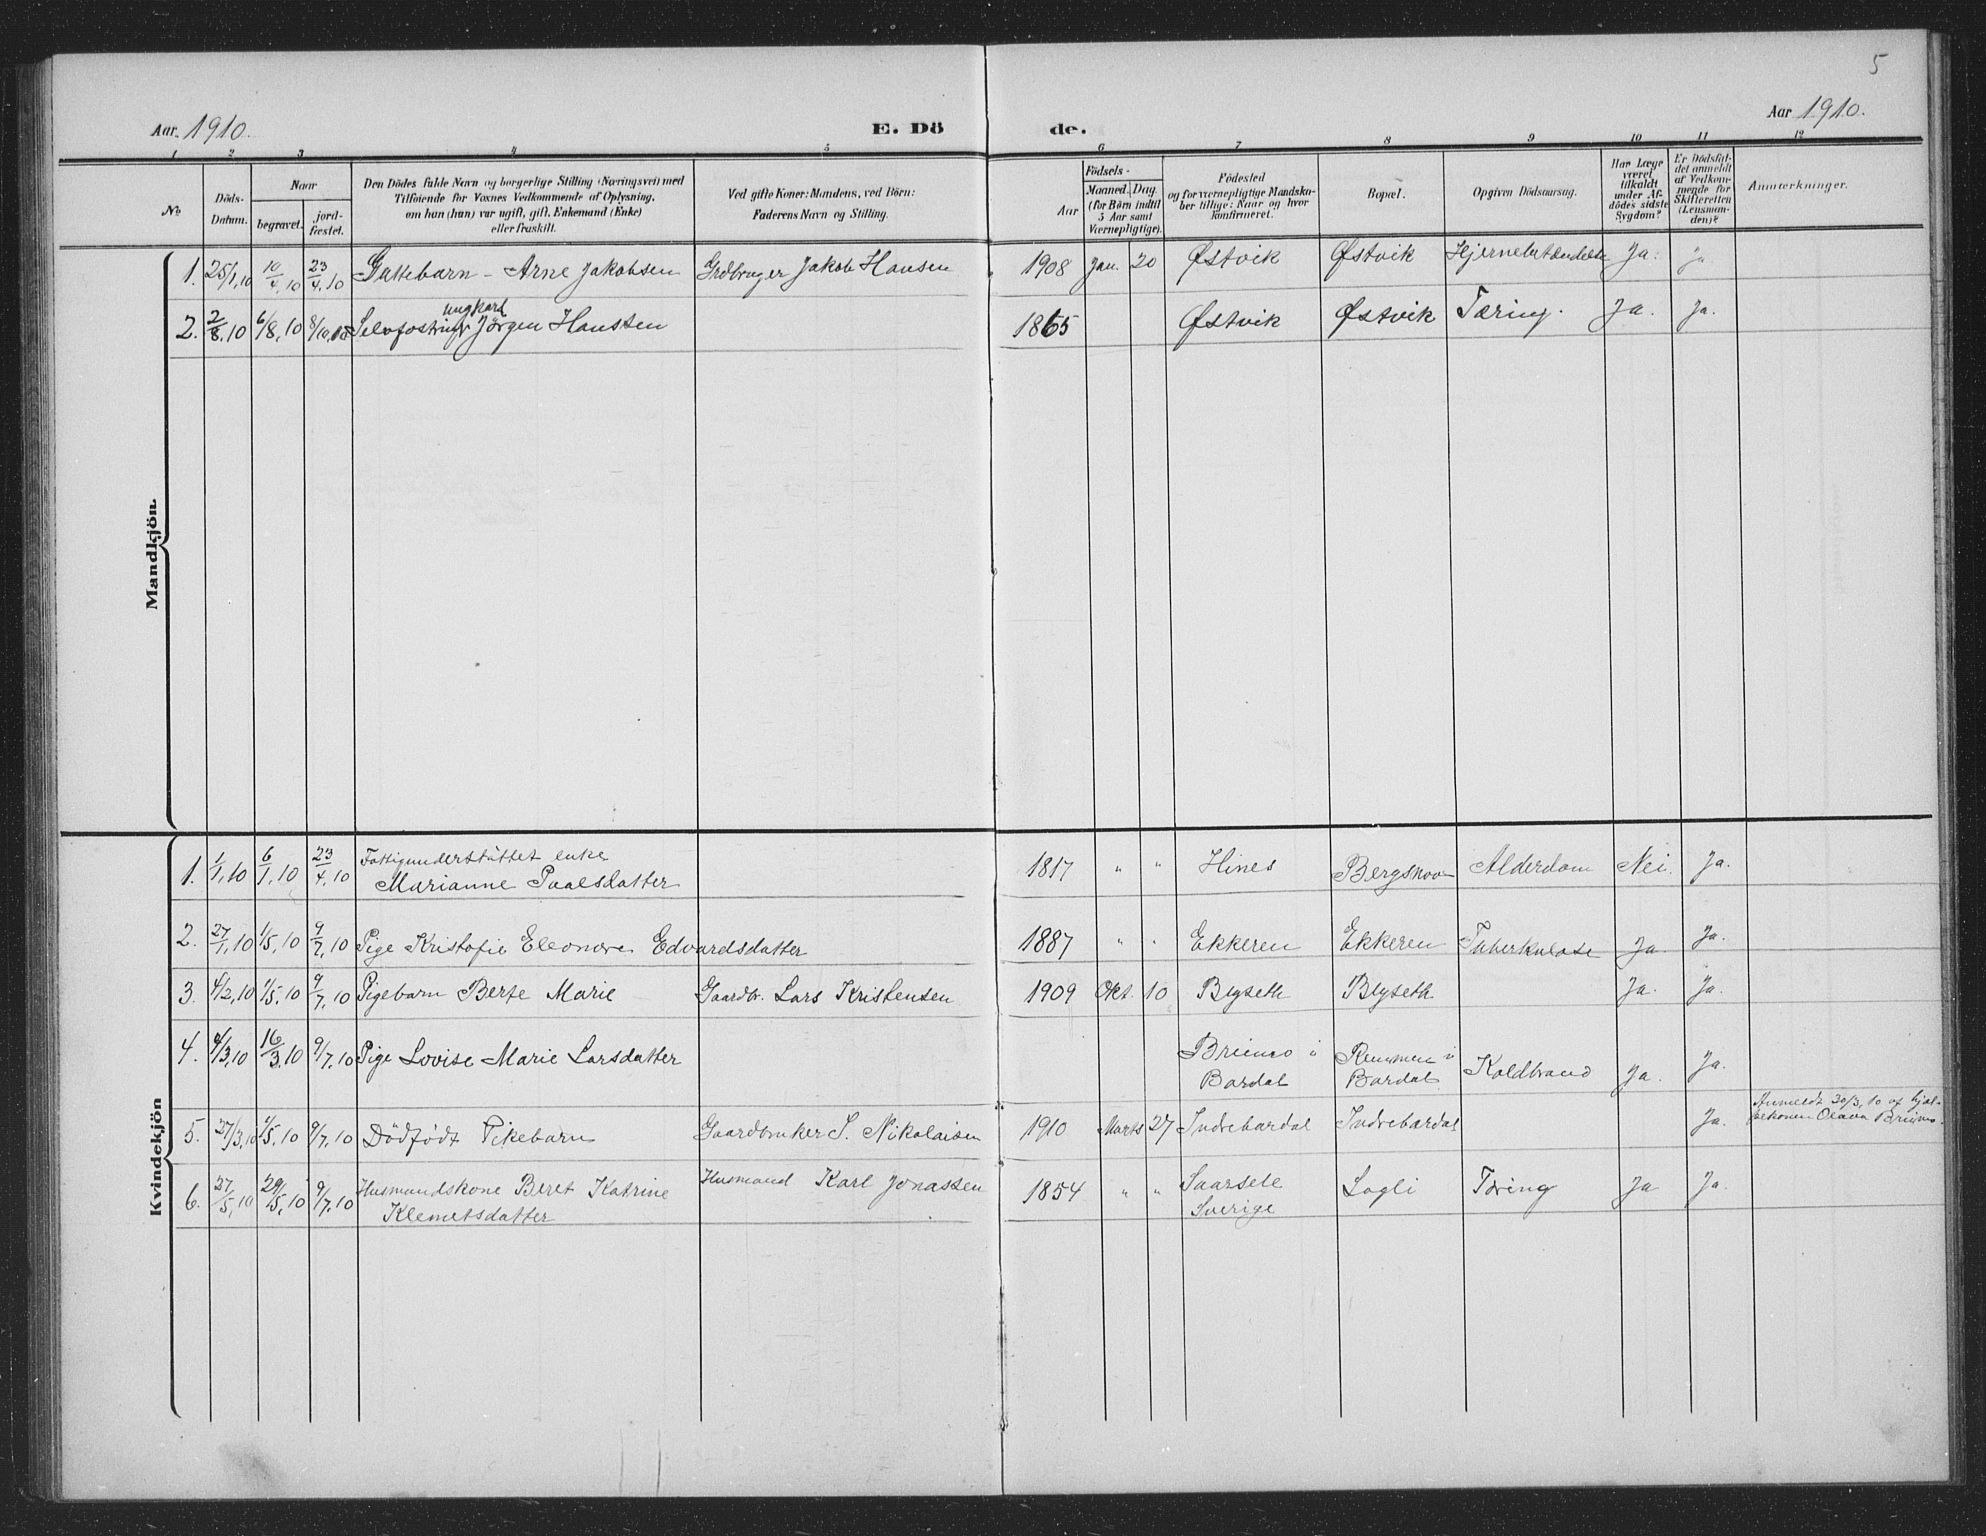 5
Aar. 1910.
E. Dö
de.
Aar 1910.
1 2 3 4 5 6 7 8 9 10 11 12
No
Döds-
Datum.
Naar
begravet.
jord-
fæstet.
Den Dödes fulde Navn og borgerlige Stilling (Næringsvei) med
Tilföiende for Voxnes Vedkommende af Oplysning,
om han (hun) var ugift, gift, Enkemand (Enke)
eller fraskilt.
Ved gifte Koner: Mandens, ved Börn:
Faderens Navn og Stilling.
Födsels-
Aar
Maaned. Dag.
(for Börn indtil
5 Aar samt
Værnepligtige).
Födested
og for værnepligtige Mandska-
ber tillige: Naar og hvor
konfirmeret.
Bopæl.
Opgiven Dödsaarsag.
Har Læge
været
tilkaldt
under Af-
dödes sidste
Sygdom?
Er Dödsfal-
det anmeldt
af Vedkom-
mende for
Skifteretten
(Lensman-
den)?
Anmerkninger.
Mandkjön.
1. 25/1,10 10/4,10 23/4,10 Guttebarn - Arne Jakobsen Grdbruger Jakob Hansen 1908 Jan. 20 Østvik Østvik Hjernebetændelse Ja. Ja
ungkarl
2. 2/8,10 6/8,10 8/10,10 Selvfostring Jørgen Hanssen 1865 Østvik Østvik Tæring. Ja. Ja.
Kvindekjön
1. 1/1,10 6/1,10 23/4,10 Fattigunderstøttet enke
Marianne Paalsdatter 1817 " " Hines Bergskov Alderdom Nei. Ja.
2. 27/1,10 1/5,10 9/7,10 Pige Kristofie Eleonore Edvardsdatter 1887 " " Ekkeren Ekkeren Tuberkulose Ja Ja.
3. 4/2,10 1/5,10 9/7,10 Pigebarn Berte Marie Gaardbr. Lars Kristensen 1909 Okt. 10 Blyseth Blyseth Ja. Ja.
4. 4/3,10 16/3,10 9/7,10 Pige Lovise Marie Larsdatter Brieimo i
Bardal Remmen i
Bardal Koldbrand Ja. Ja.
5. 27/3,10 1/5,10 9/7,10 Dödfödt Pikebarn Gaardbruker S. Nikolaisen 1910 Marts 27 Indrebardal Indrebardal Ja. Anmeldt 30/3,10 af hjæl-
pekonen Olava Brieimo.
6. 27/5,10 29/5,10 9/7,10 Husmandskone Beret Katrine
Klemetsdatter Husmand Karl Jonassen 1854 " " Saarsele
Sverige Lagli Tæring Ja Ja.